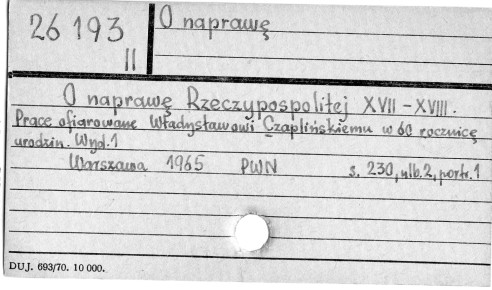 26 193
II
O naprawę
O naprawę Rzeczypospolitej XVII-XVIII.
Prace ofiarowane Władysławowi Czaplińskiemu w 60 rocznicę
urodzin. Wyd.1
Warszawa 1965 PWN s. 230, nlb.2, portr.1
DUJ. 693/70. 10 000.